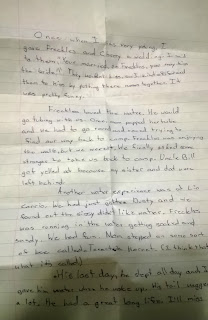 Once when I was very young, I
gave Freckles and Cherry a wedding. I said
to them "Your married so Freckles, you may kiss
the bride!" They
them to kiss by putting there noses together. It
was pretty funny.
Freckles loved the water. He would
go tubing with us. Once we popped the tube
and we had to go around and around trying to
find our way back to camp. Freckles was enjoying
the walk, but we weren't. We finally asked some
strangers to take us back to camp. Uncle Bill
got yelled at because my sister and dad were
left behind.
Another water experience was at
We had just gotten Dusty and we
found out the didn't like water. Freckles
was running in the water getting soaked and
sandy. He had fun. Mom stepped on some sort
of bee called, Tarantula Hornet. (I think that's
what it's called)
His last day, he slept all day and I
gave him water when he woke up. His tail wagged
a lot. He had a great long life. I'll miss